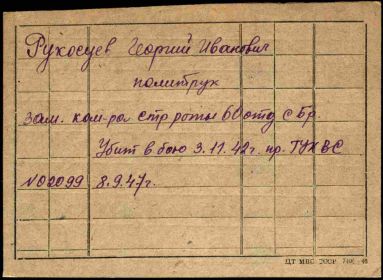 Рукосуев Георгий Иванович
политрук
зам. ком-ра стр роты 60 отд с бр.
Убит в бою 3.11.42г. пр. ГУК ВС
№02099 8.9.47г.
ЦТ МВС СССР